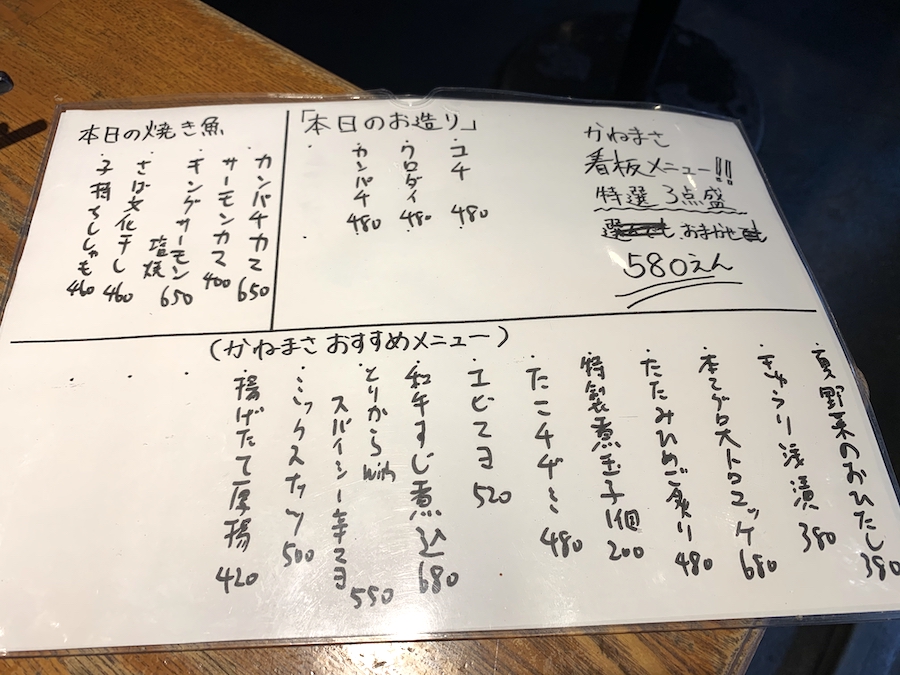 かねまさ
看板メニュー!!
特選3点盛
おまかせ
580えん
「本日のお造り」
・コチ 480
・クロダイ 480
・カンパチ 480
本日の焼き魚
・カンパチカマ 650
・サーモンカマ 400
・キングサーモン塩焼 650
・さば文化干し 460
・子持ちししゃも 460
(かねまさおすすめメニュー)
・夏野菜のおひたし 380
・きゅうり浅漬 380
・本マグロ大トロユッケ 680
・たたみひめご炙り 480
・特製煮玉子1個 200
・たこチヂミ 480
・エビマヨ 520
・和牛すじ煮込 680
・とりから with
スパイシー辛マヨ 550
・ミックスナッツ 500
・揚げたて厚揚 420